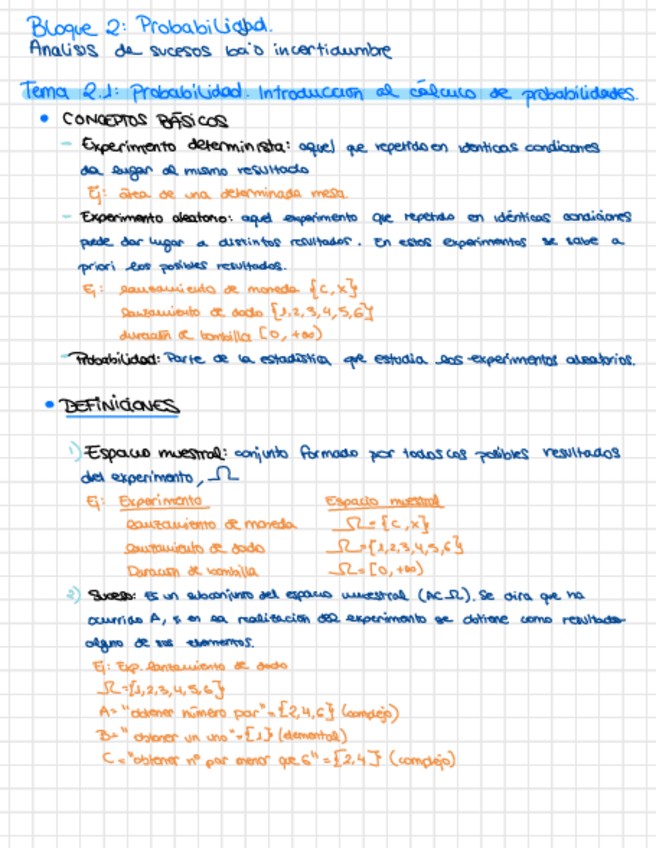 Bloque 2: Probabilidad.
Analisis de sucesos bajo incertidumbre
Tema 2.1: Probabilidad. Introducción al cálculo de probabilidades.
• CONCEPTOS BÁSICOS
- Experimento determinista: aquel que repetido en identicas condiciones
da lugar al mismo resultado
Ej: área de una determinada mesa.
- Experimento aleatorio: aquel experimento que repetido en idénticas condiciones
puede dar lugar a distintos resultados. En estos experimentos se sabe a
priori los posibles resultados.
Ej: lanzamiento de moneda {C,X}
lanzamiento de dado {1,2,3,4,5,6}
duración de bombilla [0, +∞)
- Probabilidad: Parte de la estadística que estudia los experimentos aleatorios.
• DEFINICIONES
1) Espacio muestral: conjunto formado por todos los posibles resultados
del experimento, Ω
Ej: Experimento Espacio muestral
lanzamiento de moneda Ω={C,X}
lanzamiento de dado Ω={1,2,3,4,5,6}
Duración de bombilla Ω=[0,+∞)
2) Suceso: Es un subconjunto del espacio muestral (A⊂Ω). Se dira que ha
ocurrido A, si en la realización del experimento se obtiene como resultado
alguno de sus elementos.
Ej: Exp. lanzamiento de dado
Ω={1,2,3,4,5,6}
A="obtener número par"={2,4,6} (complejo)
B="obtener un uno"={1} (elemental)
C="obtener nº par menor que 6"={2,4} (complejo)